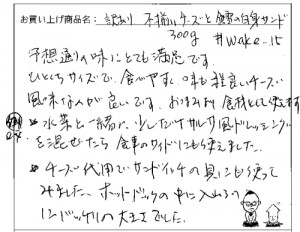 お買い上げ商品名：訳あり 不揃いチーズと鱈の白身サンド
300g #wake-15
予想通りの味にとても満足です。
ひとくちサイズで、食べやすく、味も程良いチーズ
風味なのが良いです。おまみより食材として使えます
※水菜と一緒に、少しだけサルサ風ドレッシング
を混ぜたら食事のサイドにも使えました。
※チーズ代用でサンドイッチの具にも使って
みました。ホットドックの中に入る
バッチリの大きさでした。